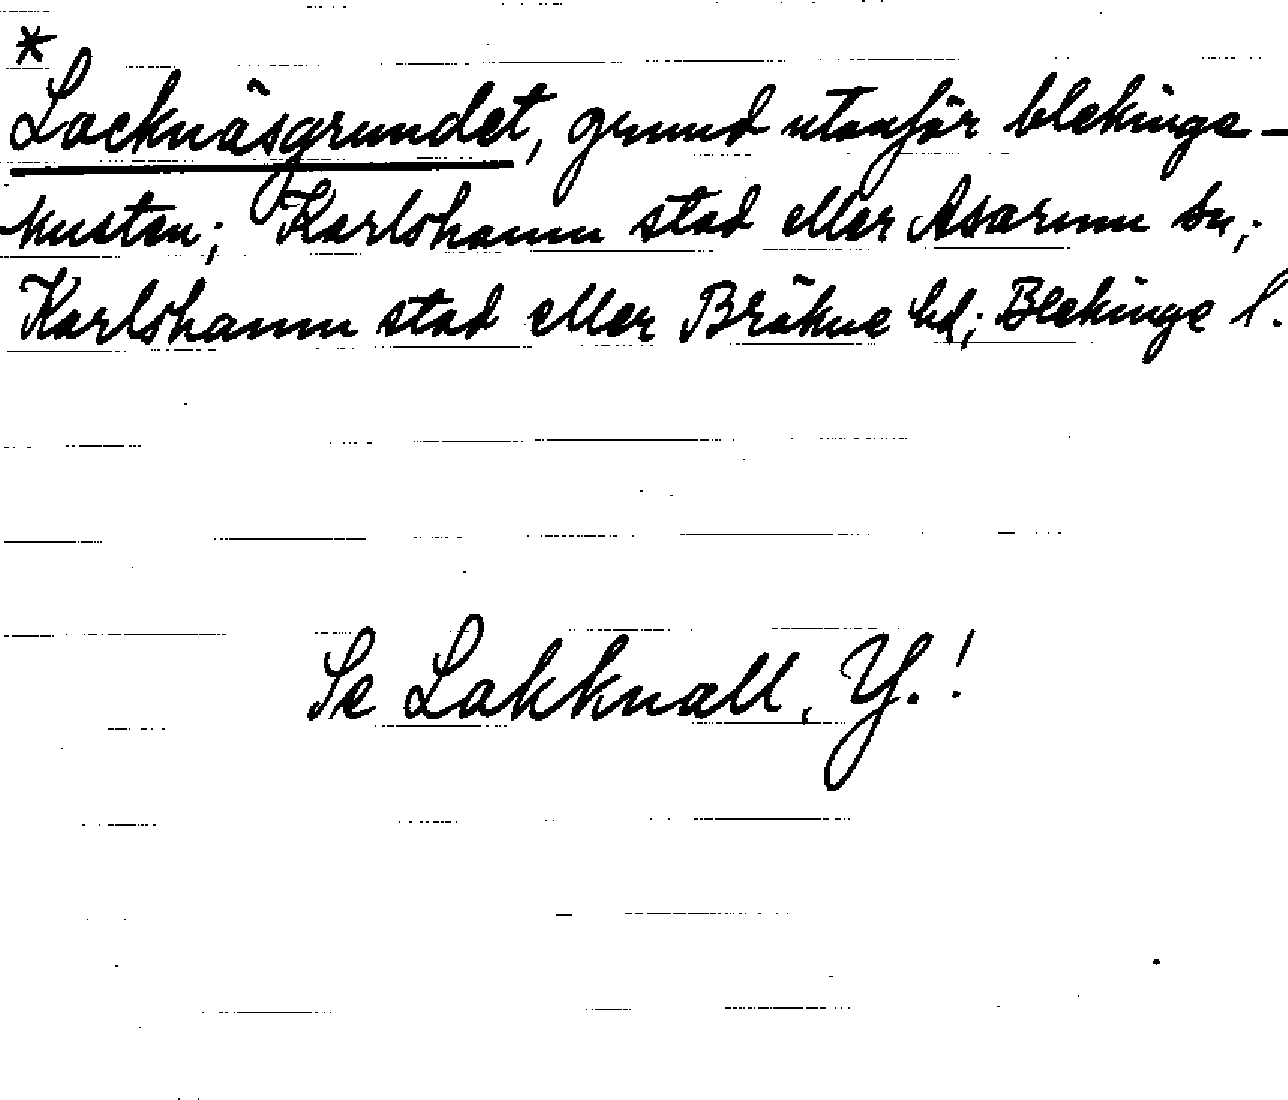 *
Lacknäsgrundet, grund utanför blekinge-
kusten; Karlshamn stad eller Asarum sn;
Karlshamn stad eller Bräkne hd; Blekinge l.
Se Lakknall, Y.!